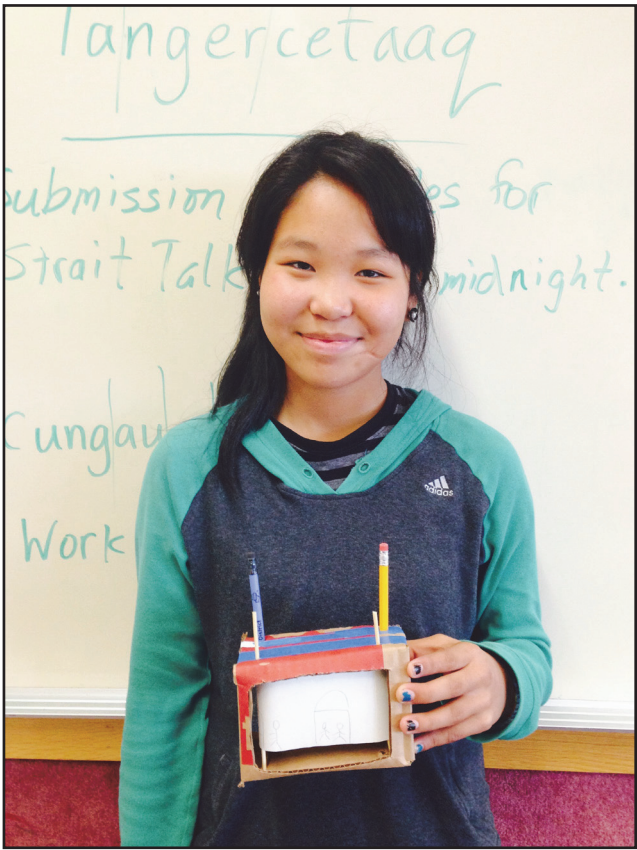 Tangercetaaq
Submission for
Strait Talk midnight.
Work
adidas